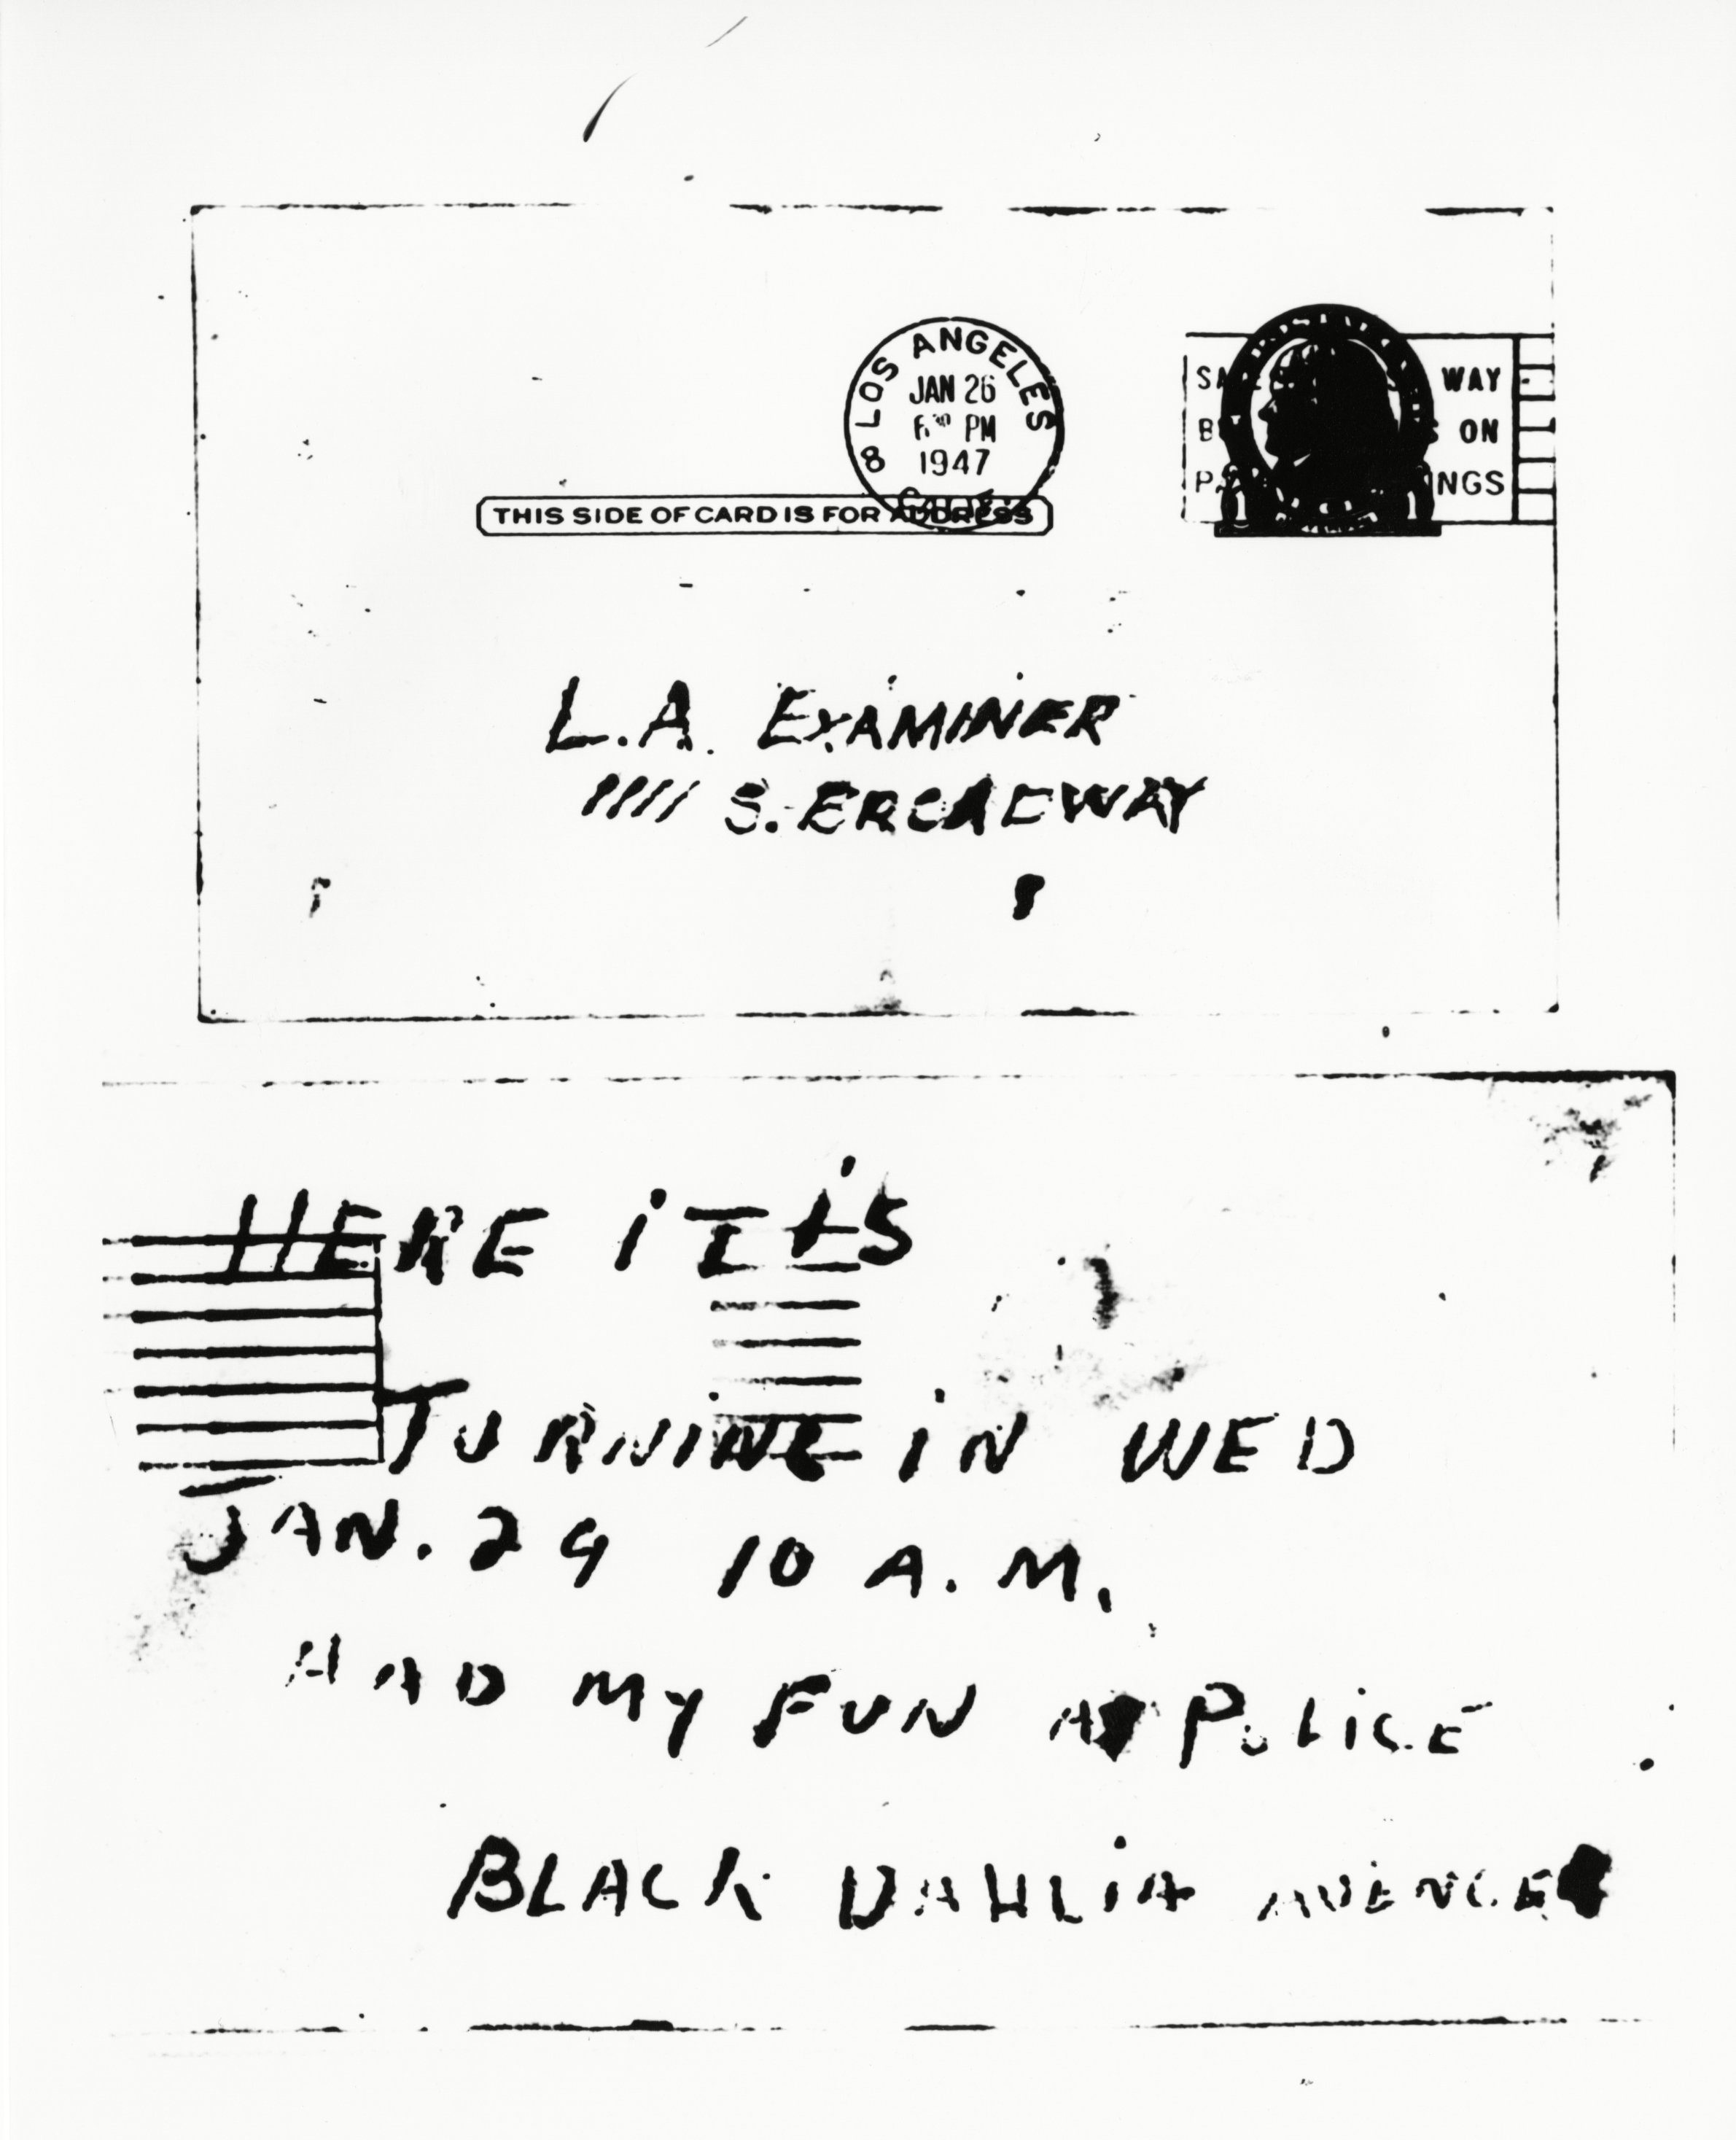 8 LOS ANGELES
JAN 26
6 30 PM
1947
CALIF.
WAY
ON
NGS
1 1
THIS SIDE OF CARD IS FOR ADDRESS
L.A. EXAMINER
1111 S. BROADWAY
HERE iT iS
TURNiNG iN WED
JAN. 29 10 A.M.
HAD MY FUN AT POLiCE
BLACK DAHLiA AVENGER